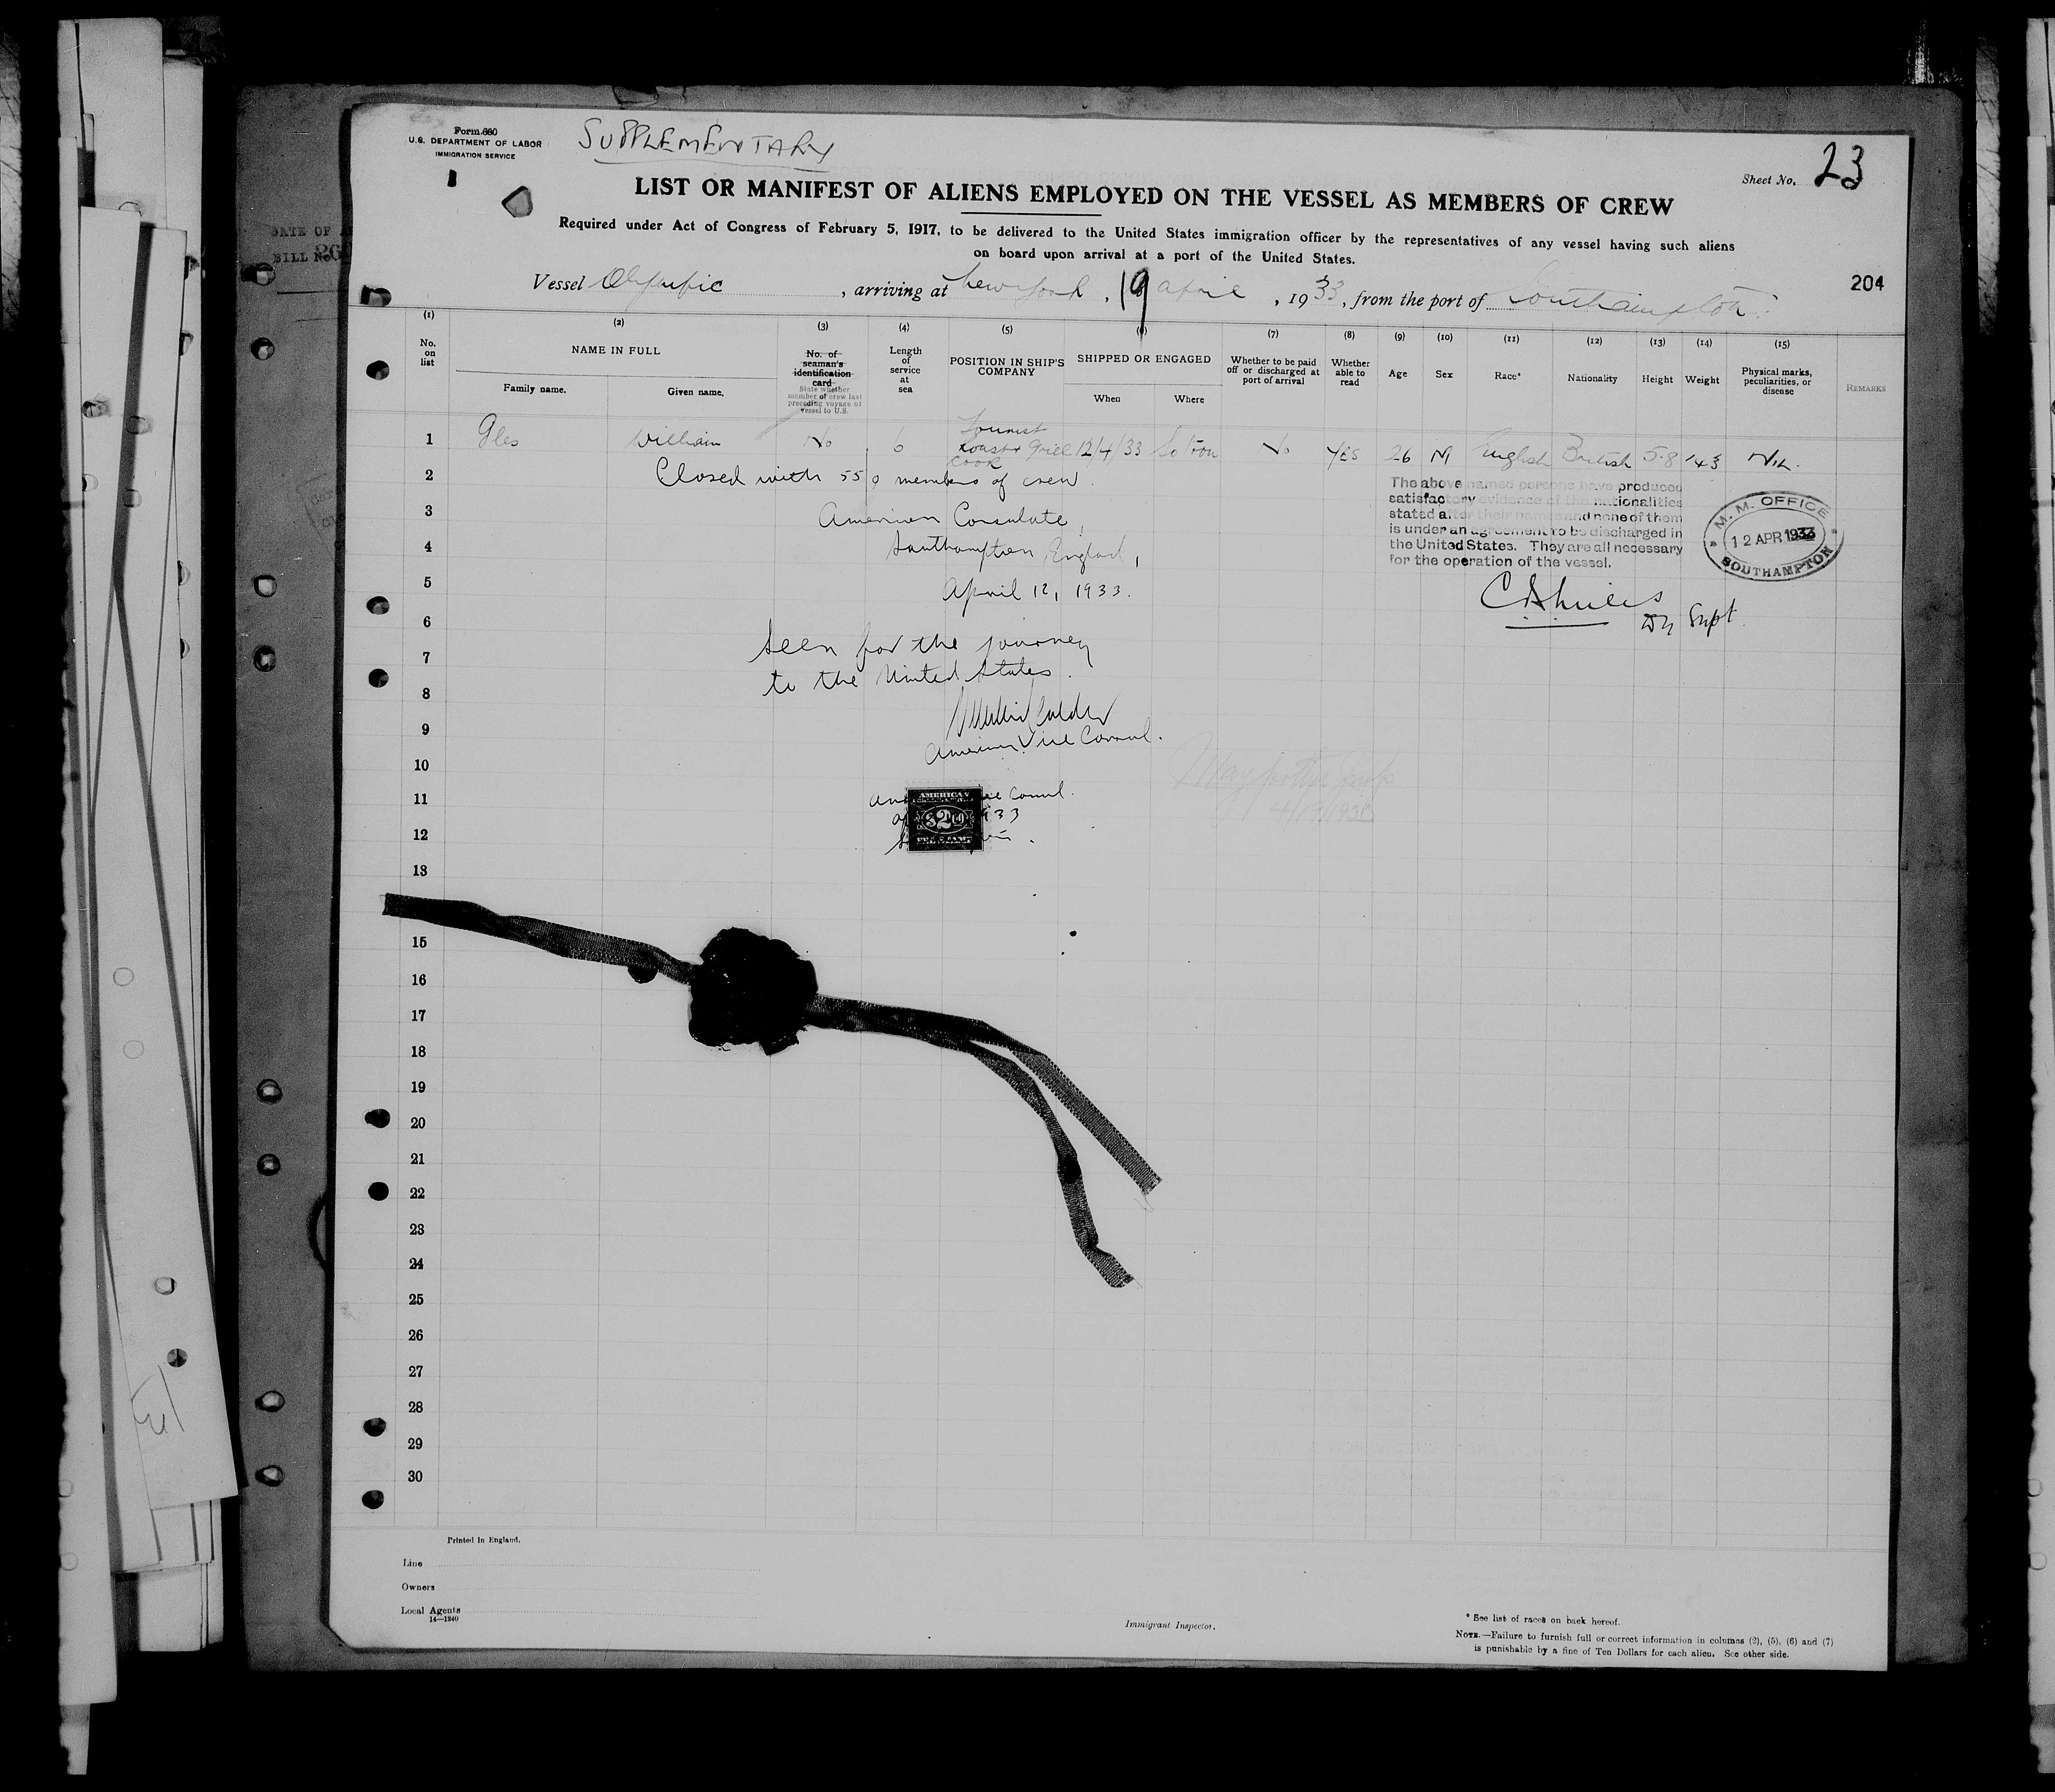 Form 680
U.S. DEPARTMENT OF LABOR
IMMIGRATION SERVICE
SUPPLEMENTARY
Sheet No. 23
LIST OR MANIFEST OF ALIENS EMPLOYED ON THE VESSEL AS MEMBERS OF CREW
Required under Act of Congress of February 5, 1917, to be delivered to the United States immigration officer by the representatives of any vessel having such aliens
on board upon arrival at a port of the United States.
DATE OF
BILL No.
204
Vessel Olympic, arriving at New York, 19 April, 1933, from the port of Southampton
(1) (2) (3) (4) (5) (6) (7) (8) (9) (10) (11) (12) (13) (14) (15)
No. on list
NAME IN FULL
Family name. Given name.
No. of seaman's identification card
State whether member of crew last preceding voyage of vessel to U.S.
Length of service at sea
POSITION IN SHIP'S COMPANY
SHIPPED OR ENGAGED
When Where
Whether to be paid off or discharged at port of arrival
Whether able to read
Age
Sex
Race*
Nationality
Height
Weight
Physical marks, peculiarities, or disease
REMARKS
1 William No 6 Tourist Roast & Grill Cook 12/4/33 So'ton No YES 26 M English British 5-8 143 Nil.
2 Closed with 559 members of crew.
3 American Consulate,
4 Southampton, England,
5 April 12, 1933.
6
7 Seen for the journey
8 to the United States.
9 American Vice Consul.
10
11 Consul.
12
AMERICAN
$2.00
FEE STAMP
The above named persons have produced
satisfactory evidence of the nationalities
stated after their names and none of them
is under an agreement to be discharged in
the United States. They are all necessary
for the operation of the vessel.
M. M. OFFICE
12 APR 1933
SOUTHAMPTON
Dy Supt
4/19/1933
13
15
16
17
18
19
20
21
22
23
24
25
26
27
28
29
30
Printed in England.
Line
Owners
Local Agents
14—1240
Immigrant Inspector.
* See list of races on back hereof.
NOTE.—Failure to furnish full or correct information in columns (2), (5), (6) and (7)
is punishable by a fine of Ten Dollars for each alien. See other side.